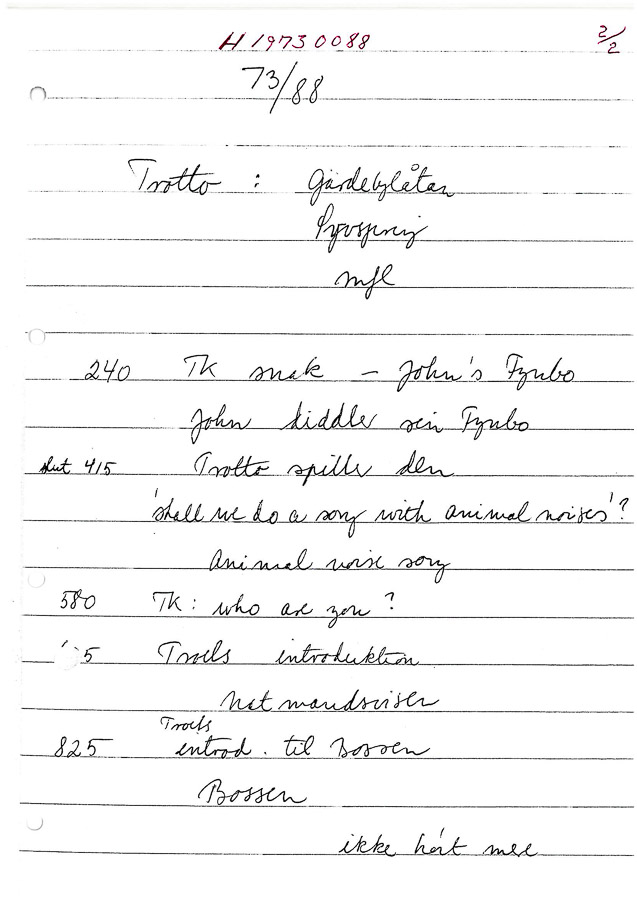 H 19730088 2/2
73/88
Trotto : Gärdebylåtan
mfl
240 TK snak – John's Fynbo
John diddler sin Fynbo
slut 415 Trotto spiller den
'shall we do a song with animal noises'?
animal noise song
580 TK: who are you?
5 Troels introduktion
Natmandsviser
Troels
825 introd. til Bossen
Bossen
ikke hørt mere